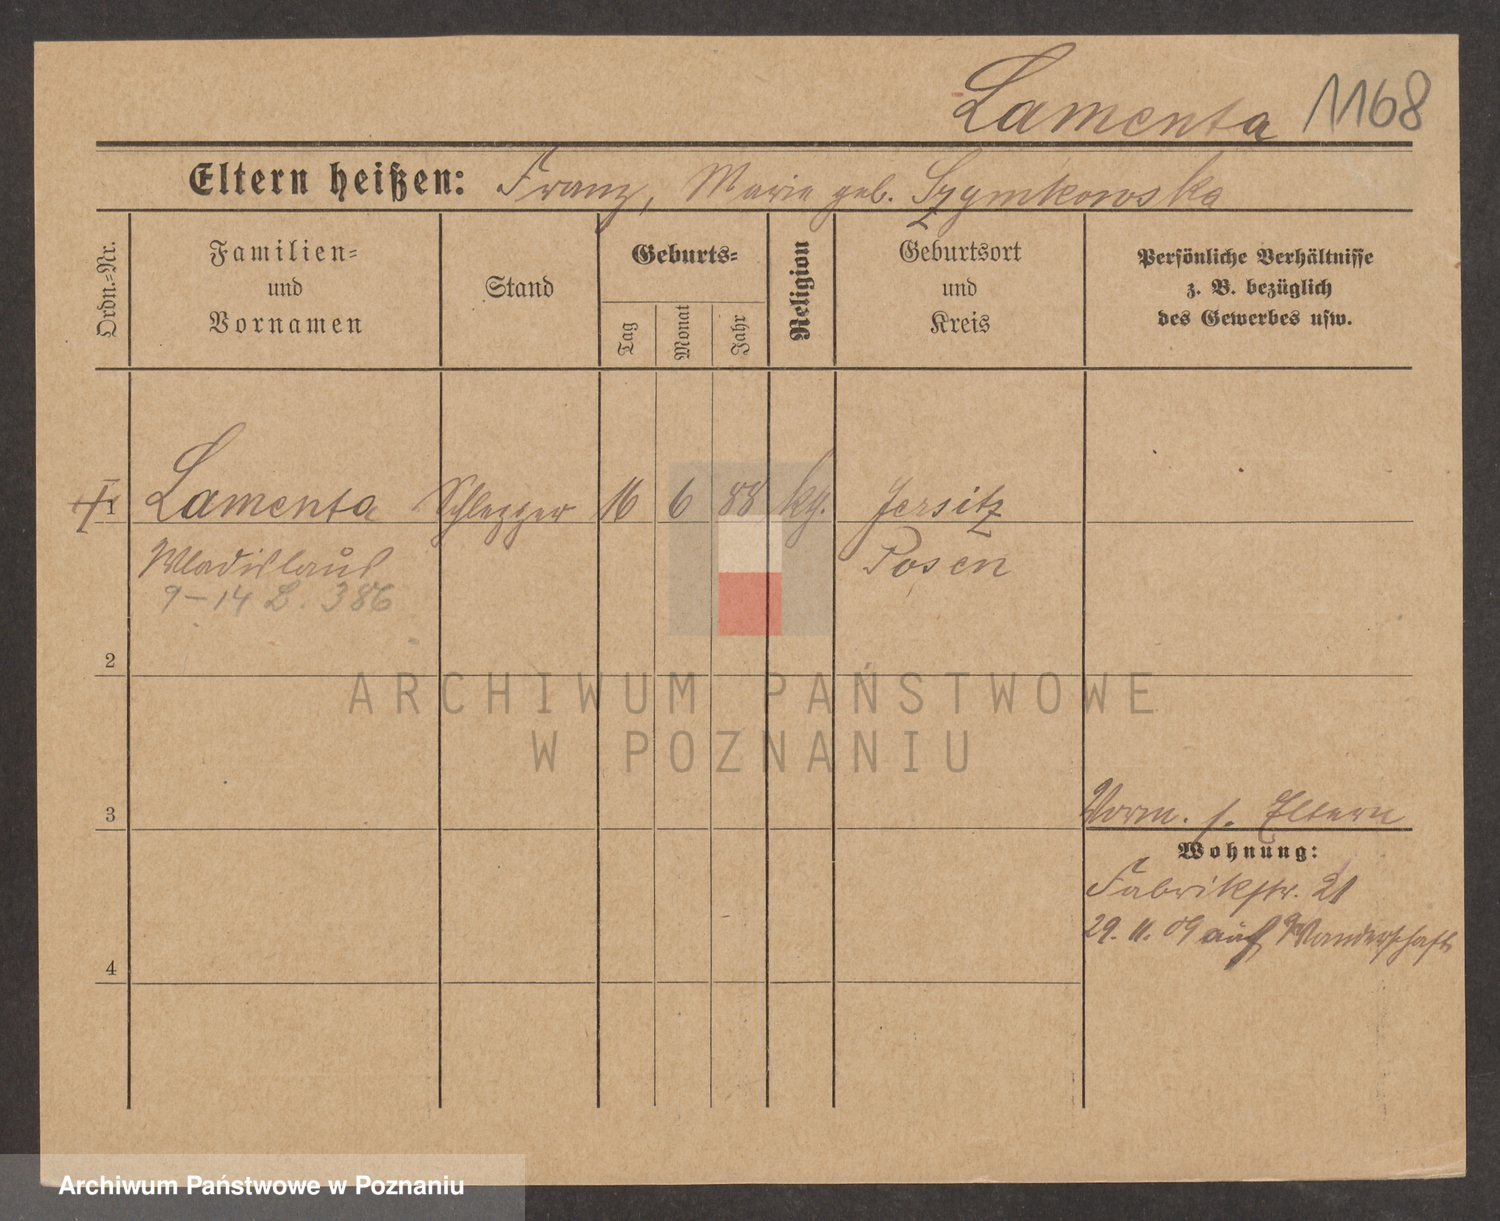 Lamenta 1168
Eltern heißen: Franz, Marie geb. Szymkowska
Ordn.=Nr.
Familien=
und
Vornamen
Stand
Geburts=
Tag
Monat
Jahr
Religion
Geburtsort
und
Kreis
Persönliche Verhältnisse
z. B. bezüglich
des Gewerbes usw.
1 Lamenta 16 6 88 kth. Jersitz
Wladislaus Posen
9-14 L. 386
2
ARCHIWUM PAŃSTWOWE
W POZNANIU
3
Vorm. s. Eltern
Wohnung:
Fabrikstr. 21
29. 11. 09 auf Wanderschaft
4
Archiwum Państwowe w Poznaniu